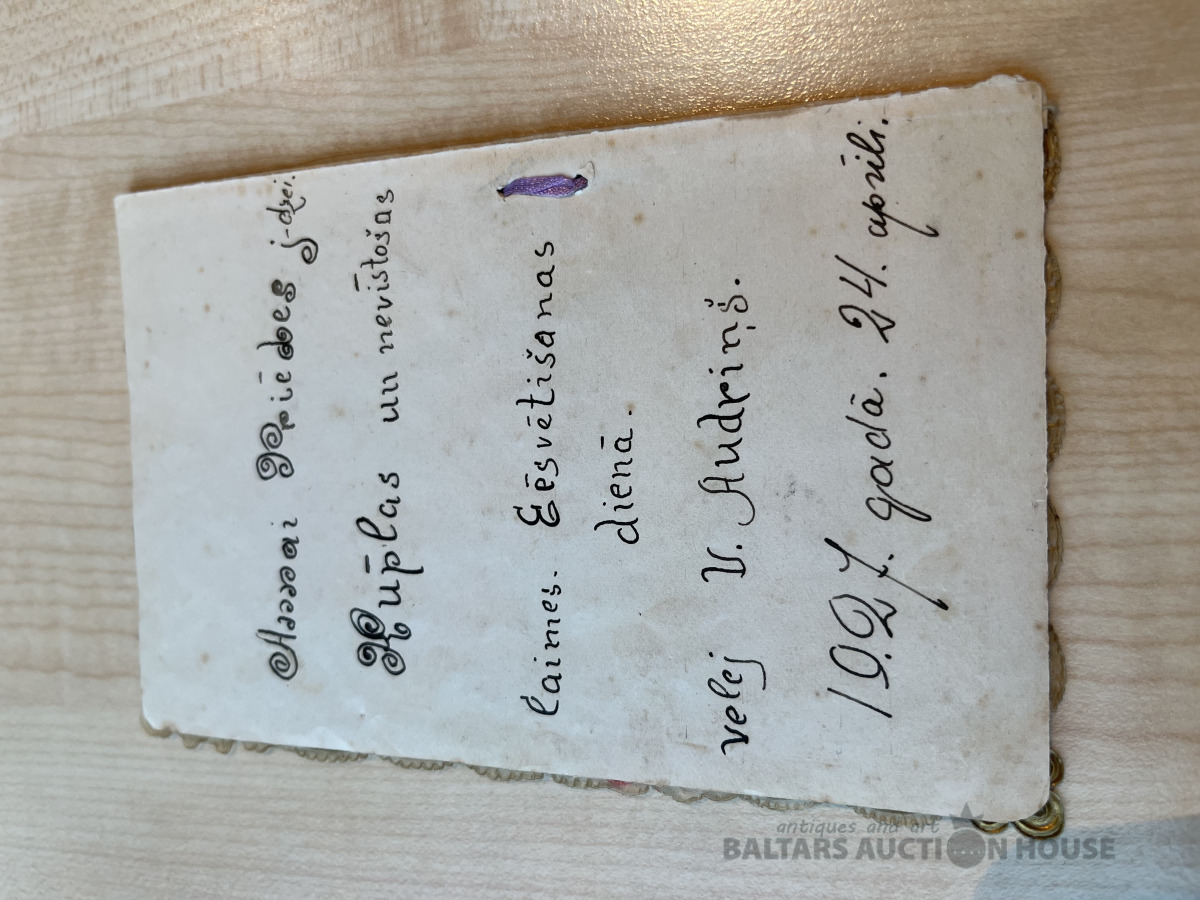 Annai Priedes j-dzei.
Kūplas un nevīstošas
laimes. Eēsvētišanas
dienā.
velej V. Audriņš.
1927. gadā. 24. aprīli.
antiques and art
BALTARS AUCTION HOUSE